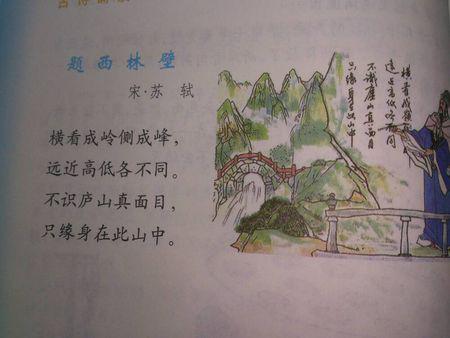 题西林壁
宋·苏轼
横看成岭侧成峰，
远近高低各不同。
不识庐山真面目，
只缘身在此山中。
远近高低各不同
不识庐山真面目
只缘身在此山中